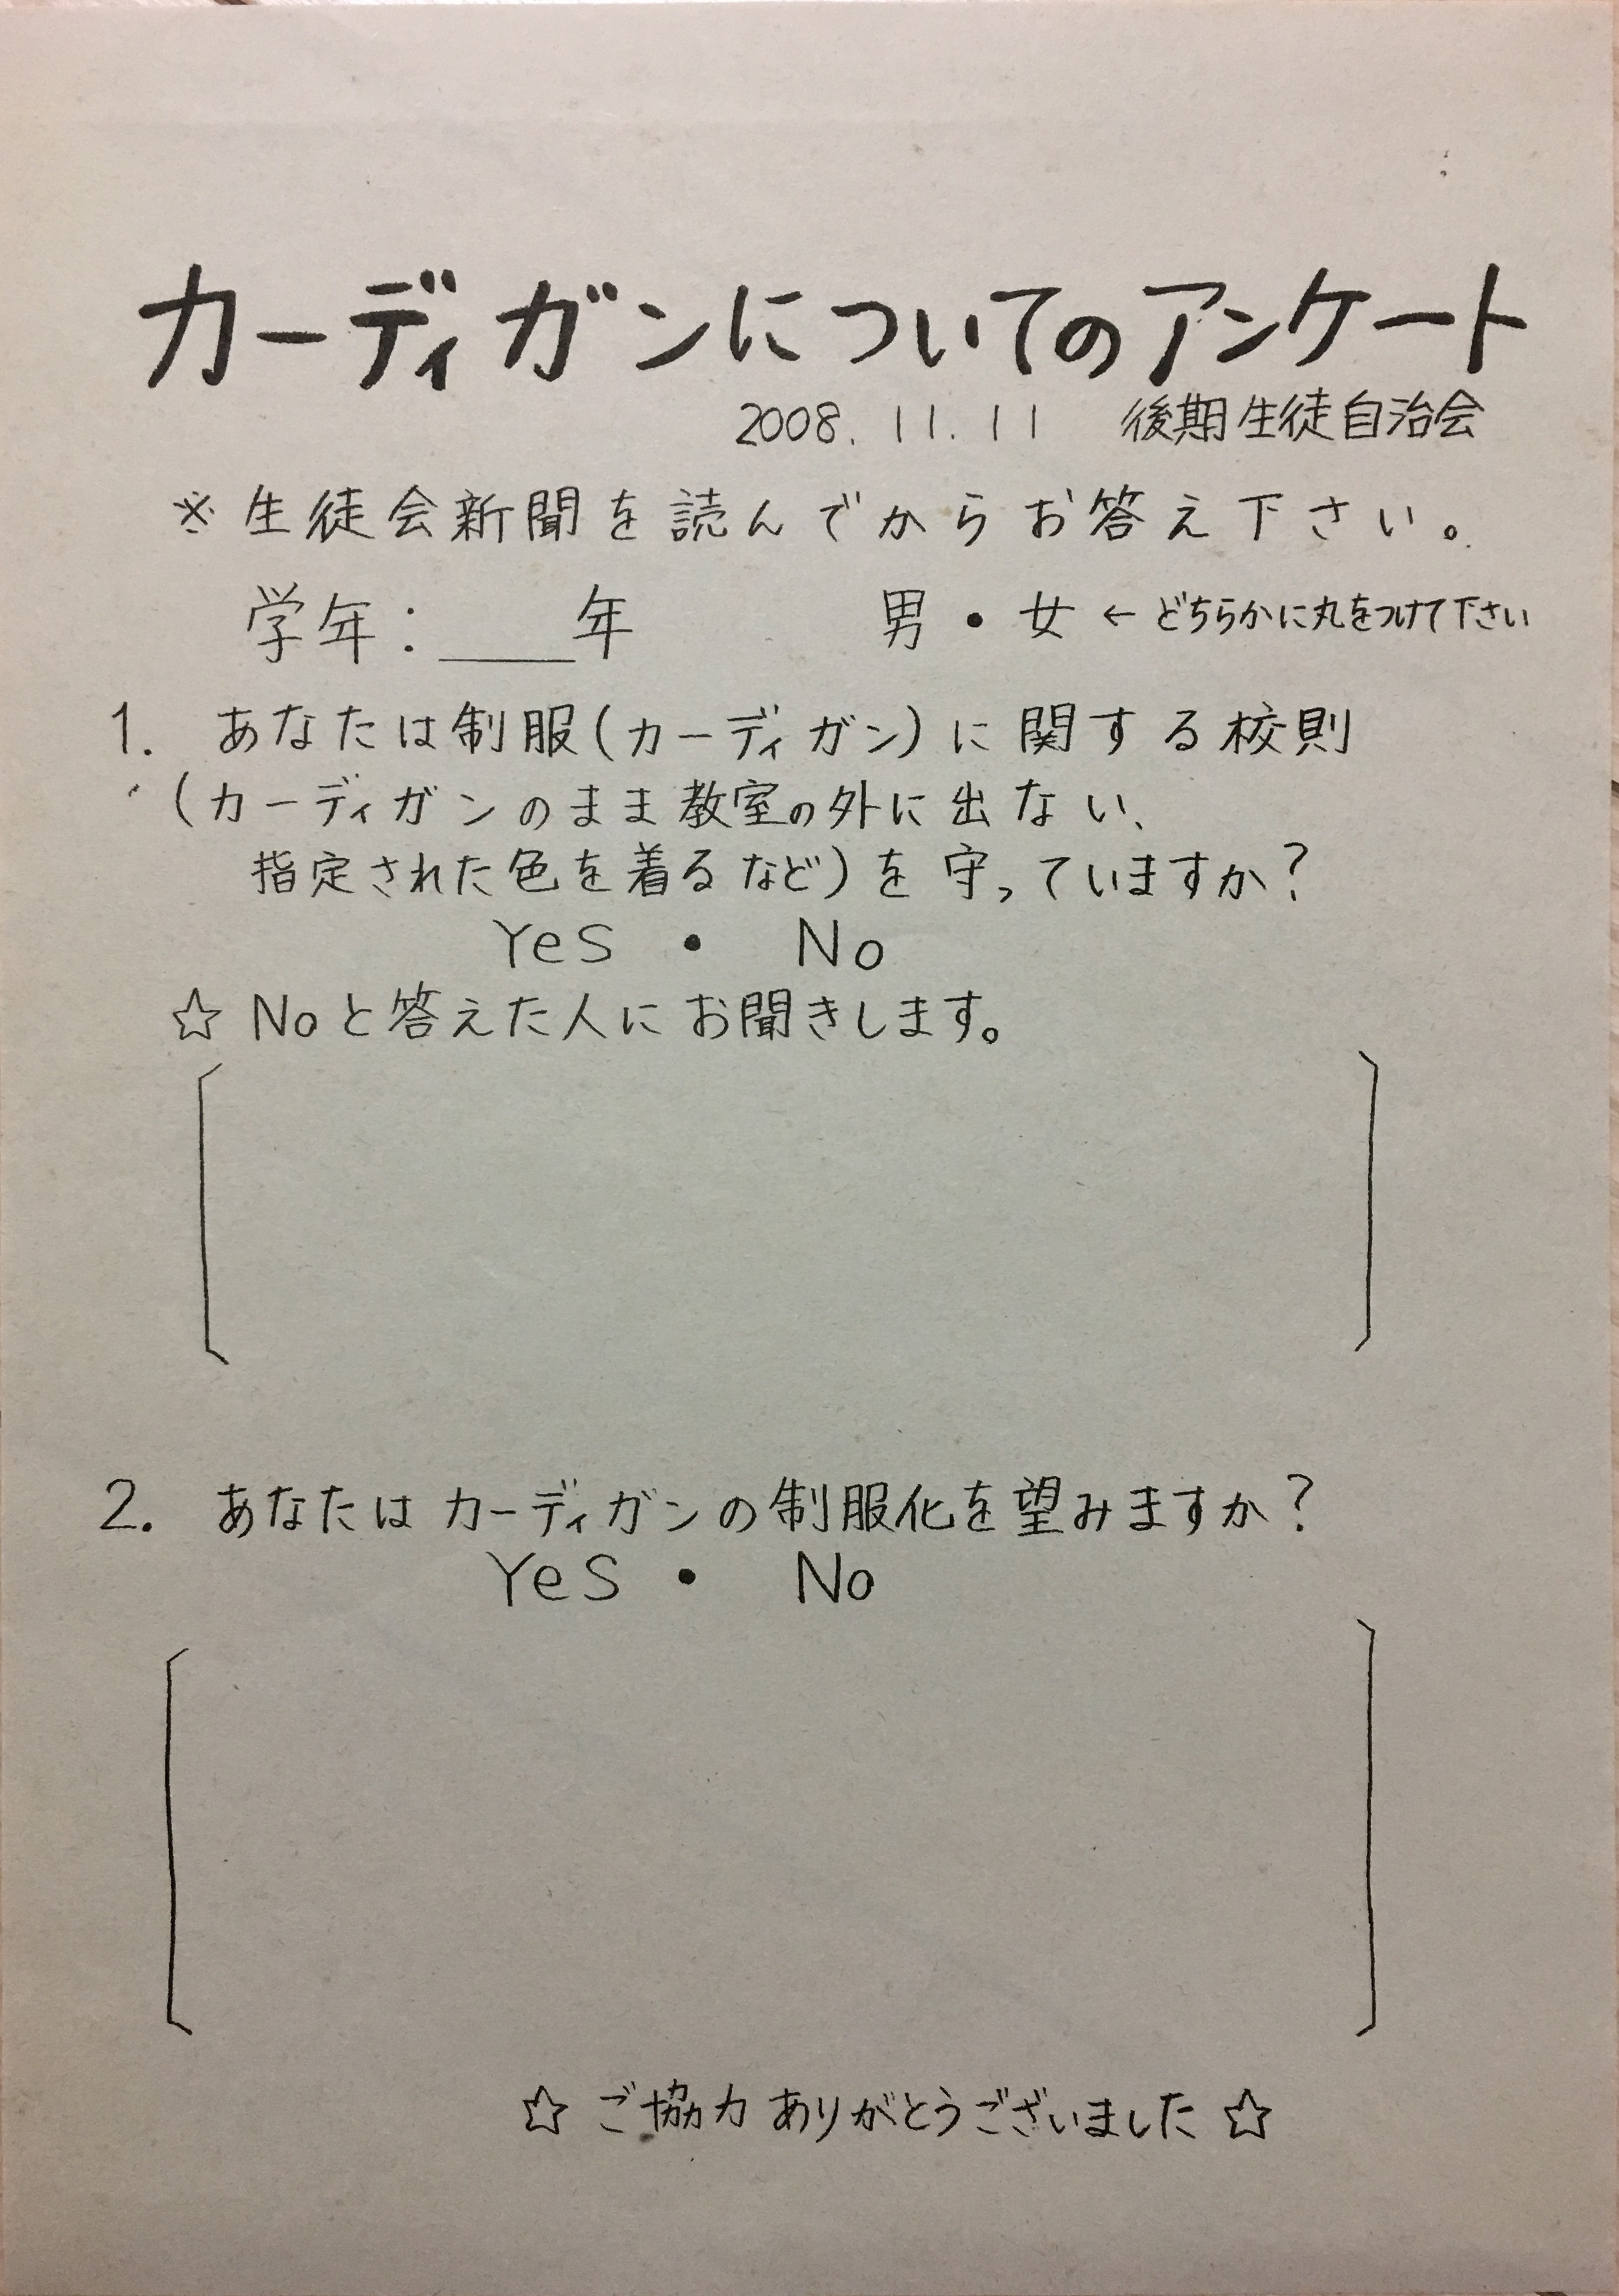 カーディガンについてのアンケート
2008.11.11 後期生徒自治会
※生徒会新聞を読んでからお答え下さい。
学年:____年 男・女 ←どちらかに丸をつけて下さい
1. あなたは制服(カーディガン)に関する校則
(カーディガンのまま教室の外に出ない、
指定された色を着るなど)を守っていますか?
Yes ・ No
☆ Noと答えた人にお聞きします。
2. あなたはカーディガンの制服化を望みますか?
Yes ・ No
☆ ご協力ありがとうございました ☆